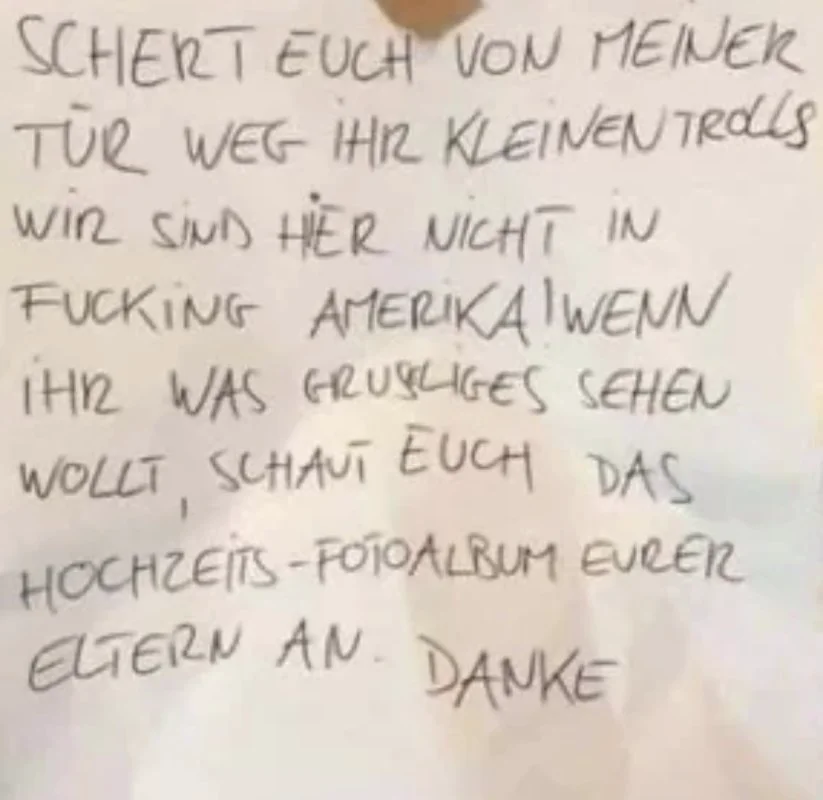 SCHERT EUCH VON MEINER
TÜR WEG IHR KLEINEN TROLLS
WIR SIND HIER NICHT IN
FUCKING AMERIKA! WENN
IHR WAS GRUSLIGES SEHEN
WOLLT, SCHAUT EUCH DAS
HOCHZEITS-FOTOALBUM EURER
ELTERN AN. DANKE